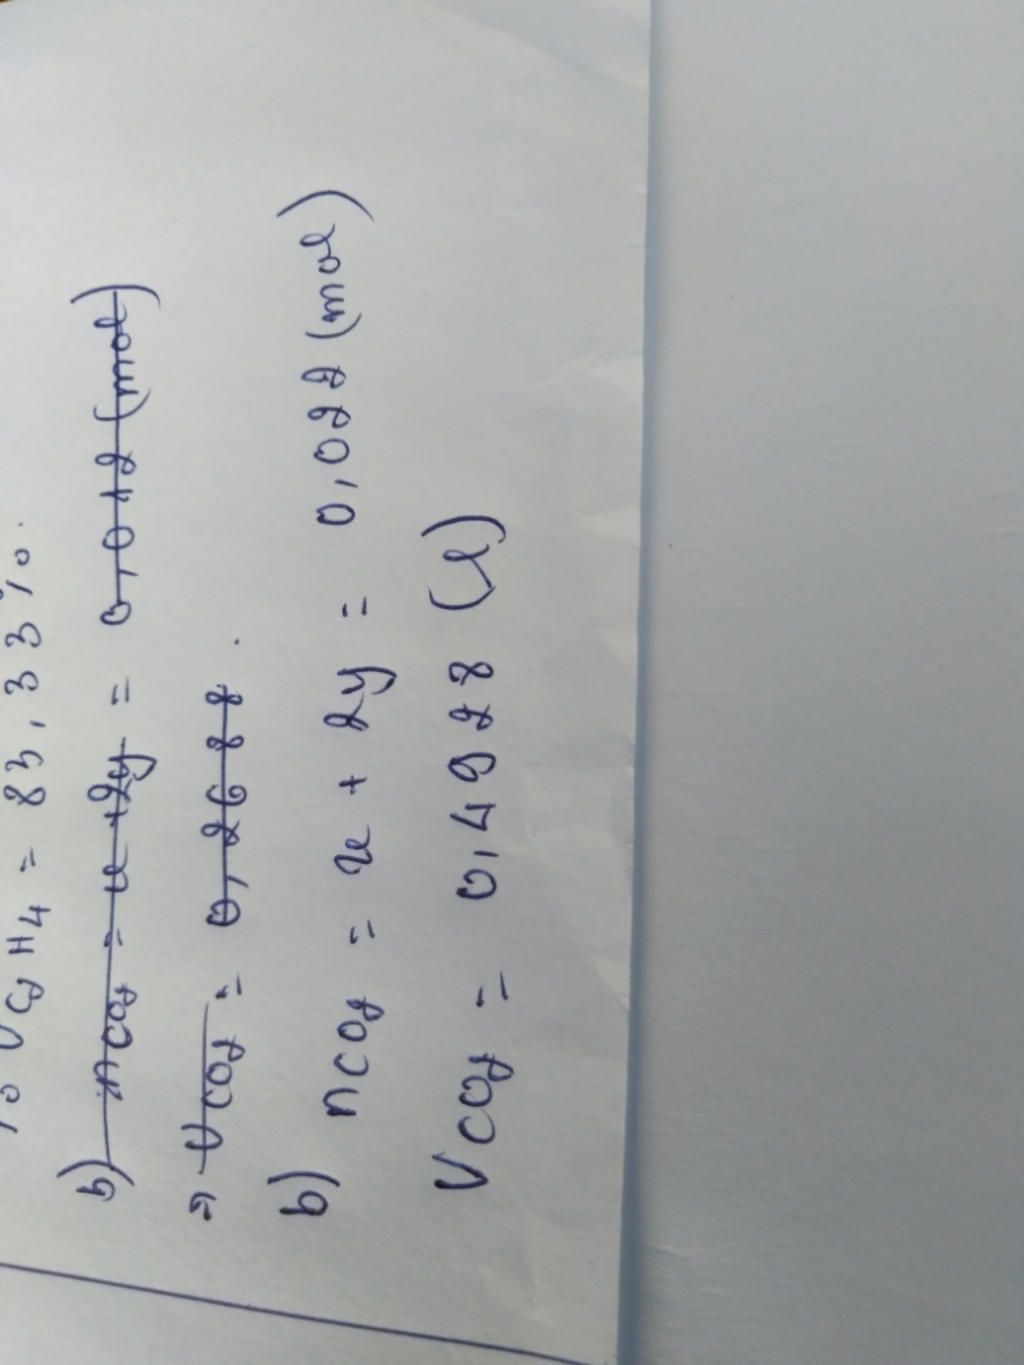 % V C2H4 = 83,33%.
b) nCO2 = x + 2y = 0,012 (mol)
=> VCO2 = 0,2688.
b) nCO2 = x + 2y = 0,022 (mol)
VCO2 = 0,4928 (l)